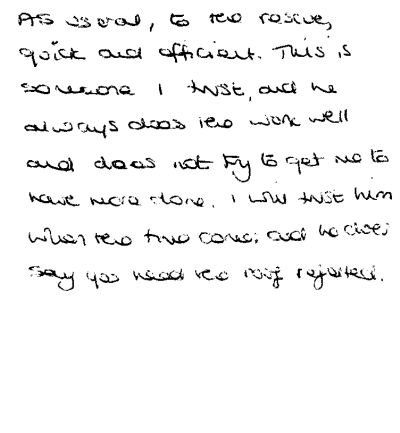 As usual, to the rescue,
quick and efficient. This is
someone I trust, and he
always does the work well
and does not try to get me to
have more done. I will trust him
when the time comes and he does
say you need the roof rejoited.